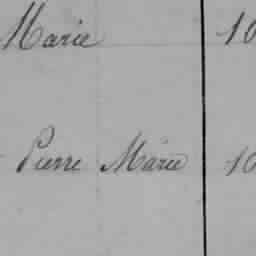 Marie 10
Pierre Marie 10